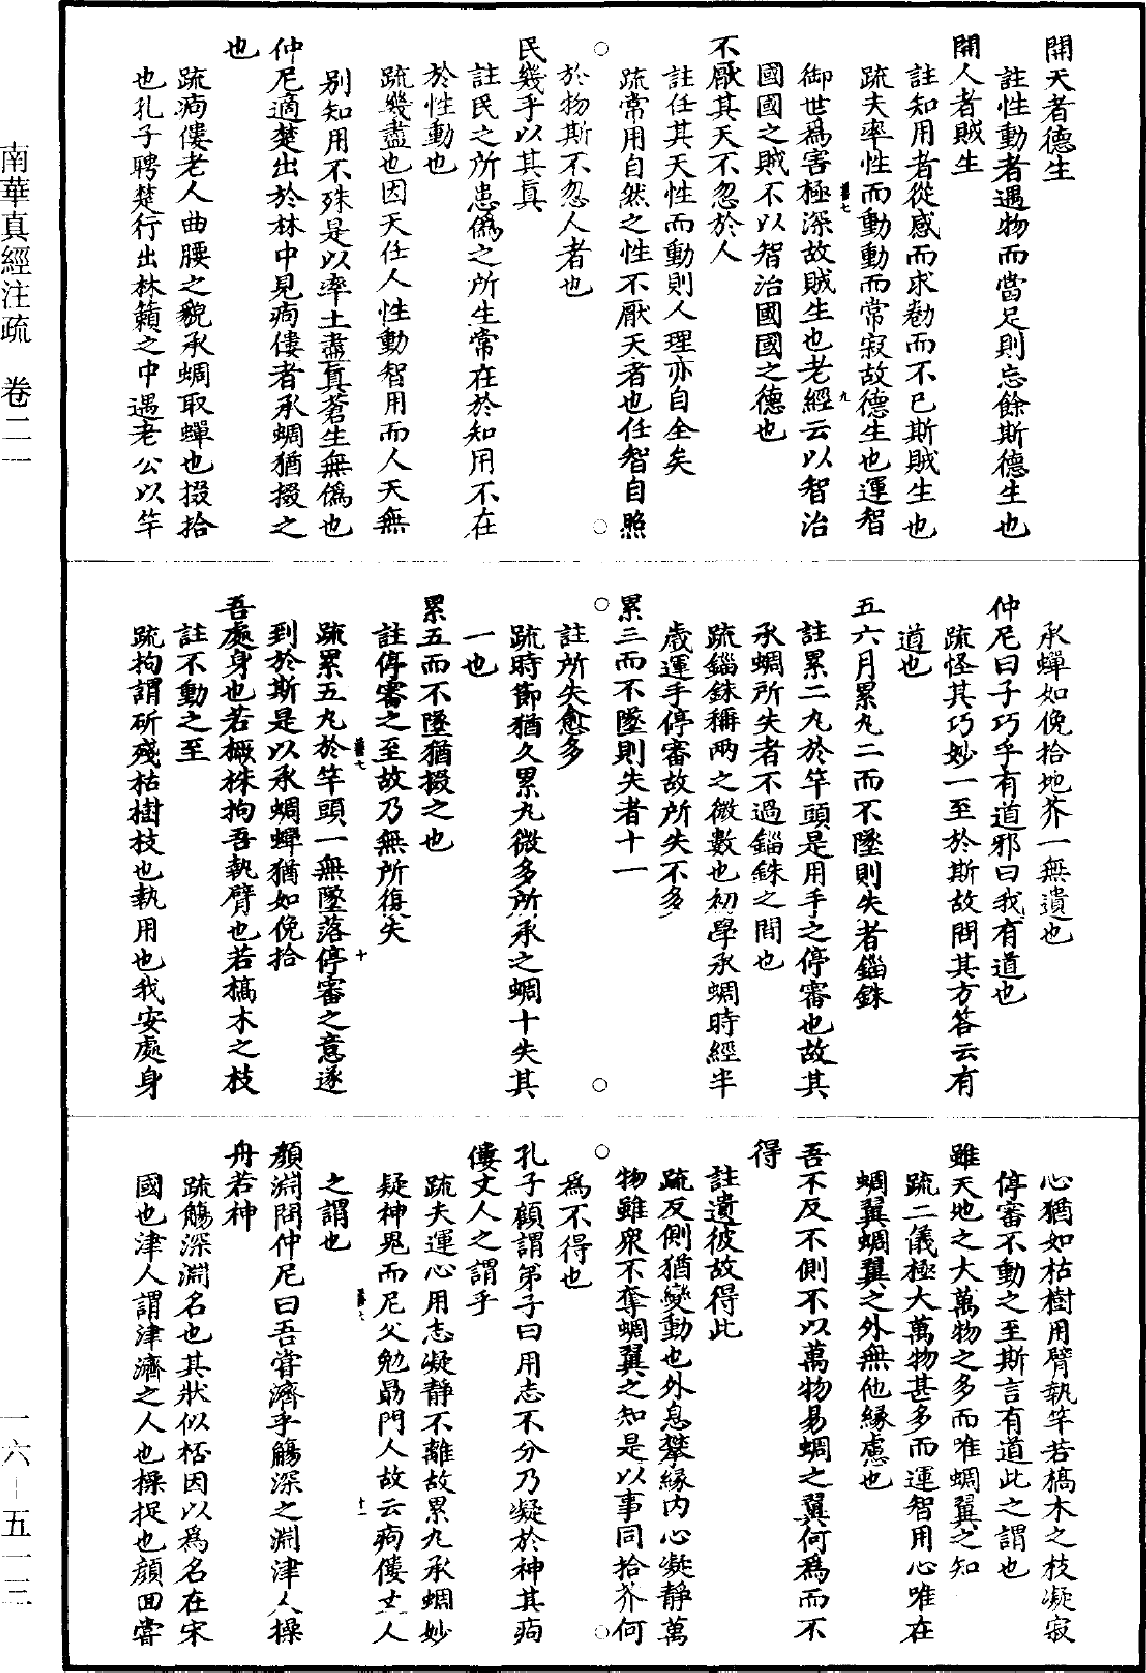 開天者德生
註性動者遇物而當足則忘餘斯德生也
開人者賊生
註知用者從感而求勌而不已斯賊生也
疏夫率性而動動而常寂故德生也運智
御世爲害極深故賊生也老經云以智治
國國之賊不以智治國國之德也
不厭其天不忽於人
註任其天性而動則人理亦自全矣
疏常用自然之性不厭天者也任智自照
於物斯不忽人者也
民幾乎以其眞
註民之所患僞之所生常在於知用不在
於性動也
疏幾盡也因天任人性動智用而人天無
別知用不殊是以率土盡眞蒼生無僞也
仲尼適楚出於林中見痀僂者承蜩猶掇之
也
疏痀僂老人曲腰之貌承蜩取蟬也掇拾
也孔子聘楚行出林籟之中遇老公以竿
承蟬如俛拾地芥一無遺也
仲尼曰子巧乎有道邪曰我有道也
疏怪其巧妙一至於斯故問其方答云有
道也
五六月累九二而不墜則失者錙銖
註累二九於竿頭是用手之停審也故其
承蜩所失者不過錙銖之間也
疏錙銖稱兩之微數也初學承蜩時經半
歲運手停審故所失不多
累三而不墜則失者十一
註所失愈多
疏時節猶久累九微多所承之蜩十失其
一也
累五而不墜猶掇之也
註停審之至故乃無所復失
疏累五九於竿頭一無墜落停審之意遂
到於斯是以承蜩蟬猶如俛拾
吾處身也若橛株拘吾執臂也若槁木之枝
註不動之至
疏拘謂斫殘枯樹枝也執用也我安處身
心猶如枯樹用臂執竿若槁木之枝凝寂
停審不動之至斯言有道此之謂也
雖天地之大萬物之多而唯蜩翼之知
疏二儀極大萬物甚多而運智用心唯在
蜩翼蜩翼之外無他緣慮也
吾不反不側不以萬物易蜩之翼何爲而不
得
註遺彼故得此
疏反側猶變動也外息攀緣內心凝靜萬
物雖衆不奪蜩翼之知是以事同拾芥何
爲不得也
孔子顧謂弟子曰用志不分乃凝於神其痀
僂丈人之謂乎
疏夫運心用志凝靜不離故累九承蜩妙
疑神鬼而尼父勉勗門人故云痀僂丈人
之謂也
顏淵問仲尼曰吾嘗濟乎觴深之淵津人操
舟若神
疏觴深淵名也其狀似桮因以爲名在宋
國也津人謂津濟之人也操捉也顏回嘗
南華真經注疏 卷二一
一六—五一三